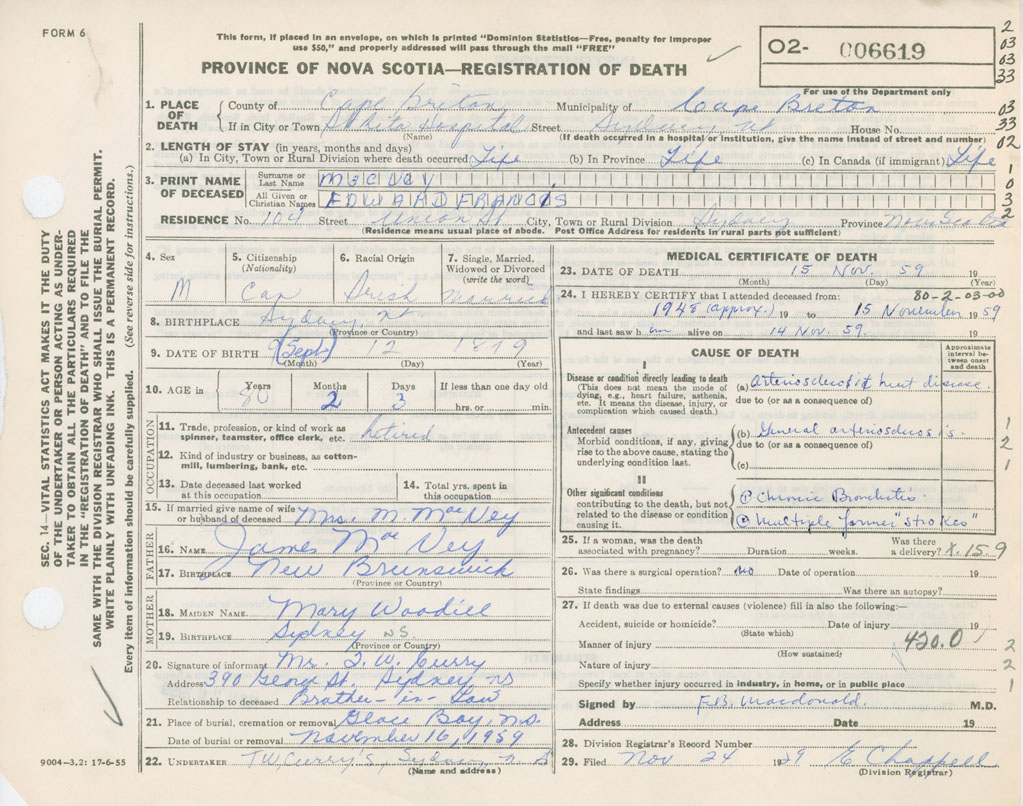 FORM 6
This form, if placed in an envelope, on which is printed "Dominion Statistics—Free, penalty for improper
use $50," and properly addressed will pass through the mail "FREE"
PROVINCE OF NOVA SCOTIA—REGISTRATION OF DEATH
O2- 006619
For use of the Department only
2
03
03
33
03
33
02
1
0
3
2
1. PLACE OF DEATH
County of Cape Briton Municipality of Cape Breton
If in City or Town St Rita Hospital Street Sydney NS House No.
(Name) (If death occurred in a hospital or institution, give the name instead of street and number)
2. LENGTH OF STAY (in years, months and days)
(a) In City, Town or Rural Division where death occurred Life (b) In Province Life (c) In Canada (if immigrant) Life
3. PRINT NAME OF DECEASED
Surname or Last Name McCVEY
All Given or Christian Names EDWARD FRANCIS
RESIDENCE No. 104 Street Union St City, Town or Rural Division Sydney Province Nova Scotia
(Residence means usual place of abode. Post Office Address for residents in rural parts not sufficient)
4. Sex M
5. Citizenship (Nationality) Can
6. Racial Origin Irish
7. Single, Married, Widowed or Divorced (write the word) Married
8. BIRTHPLACE Sydney, NS
(Province or Country)
9. DATE OF BIRTH 9 (Sept) 12 1879
(Month) (Day) (Year)
10. AGE in Years 80 Months 2 Days 3 If less than one day old
hrs. or min.
OCCUPATION
11. Trade, profession, or kind of work as
spinner, teamster, office clerk, etc. Retired
12. Kind of industry or business, as cotton-
mill, lumbering, bank, etc.
13. Date deceased last worked
at this occupation
14. Total yrs. spent in
this occupation
15. If married give name of wife
or husband of deceased Mrs. M. MacVey
FATHER
16. NAME James MacVey
17. BIRTHPLACE New Brunswick
(Province or Country)
MOTHER
18. MAIDEN NAME Mary Woodill
19. BIRTHPLACE Sydney NS
(Province or Country)
20. Signature of informant Mr. T. W. Curry
Address 390 George St. Sydney NS
Relationship to deceased Brother-in-Law
21. Place of burial, cremation or removal Glace Bay, N.S.
Date of burial or removal November 16, 1959
22. UNDERTAKER T.W. Curry's, Sydney n S
(Name and address)
9004—3.2: 17-6-55
MEDICAL CERTIFICATE OF DEATH
23. DATE OF DEATH 15 Nov. 59 19
(Month) (Day) (Year)
24. I HEREBY CERTIFY that I attended deceased from: 80-2-03-00
1948 (approx.) 19 to 15 November 1959
and last saw h im alive on 14 Nov. 59. 19
CAUSE OF DEATH
Approximate interval be-tween onset and death
I
Disease or condition directly leading to death
(This does not mean the mode of
dying, e.g., heart failure, asthenia,
etc. It means the disease, injury, or
complication which caused death.)
(a) Arteriosclerotic heart disease.
due to (or as a consequence of)
Antecedent causes
Morbid conditions, if any, giving
rise to the above cause, stating the
underlying condition last.
(b) General arteriosclerosis.
due to (or as a consequence of)
(c)
1
2
1
II
Other significant conditions
contributing to the death, but not
related to the disease or condition
causing it.
① Chronic Bronchitis.
② Multiple former "strokes"
25. If a woman, was the death
associated with pregnancy? Duration weeks. Was there
a delivery? X.15.9
26. Was there a surgical operation? No Date of operation 19
State findings Was there an autopsy?
27. If death was due to external causes (violence) fill in also the following:—
Accident, suicide or homicide? Date of injury 19
(State which)
Manner of injury 420.0
(How sustained)
Nature of injury
2
2
1
Specify whether injury occurred in industry, in home, or in public place
Signed by F.B. Macdonald. M.D.
Address Date 19
28. Division Registrar's Record Number
29. Filed Nov 24 1959 E Chappell
(Division Registrar)
SEC. 14—VITAL STATISTICS ACT MAKES IT THE DUTY
OF THE UNDERTAKER OR PERSON ACTING AS UNDER-
TAKER TO OBTAIN ALL THE PARTICULARS REQUIRED
IN THE "REGISTRATION OF DEATH" AND TO FILE THE
SAME WITH THE DIVISION REGISTRAR WHO SHALL ISSUE THE BURIAL PERMIT.
WRITE PLAINLY WITH UNFADING INK. THIS IS A PERMANENT RECORD.
Every item of information should be carefully supplied. (See reverse side for instructions.)